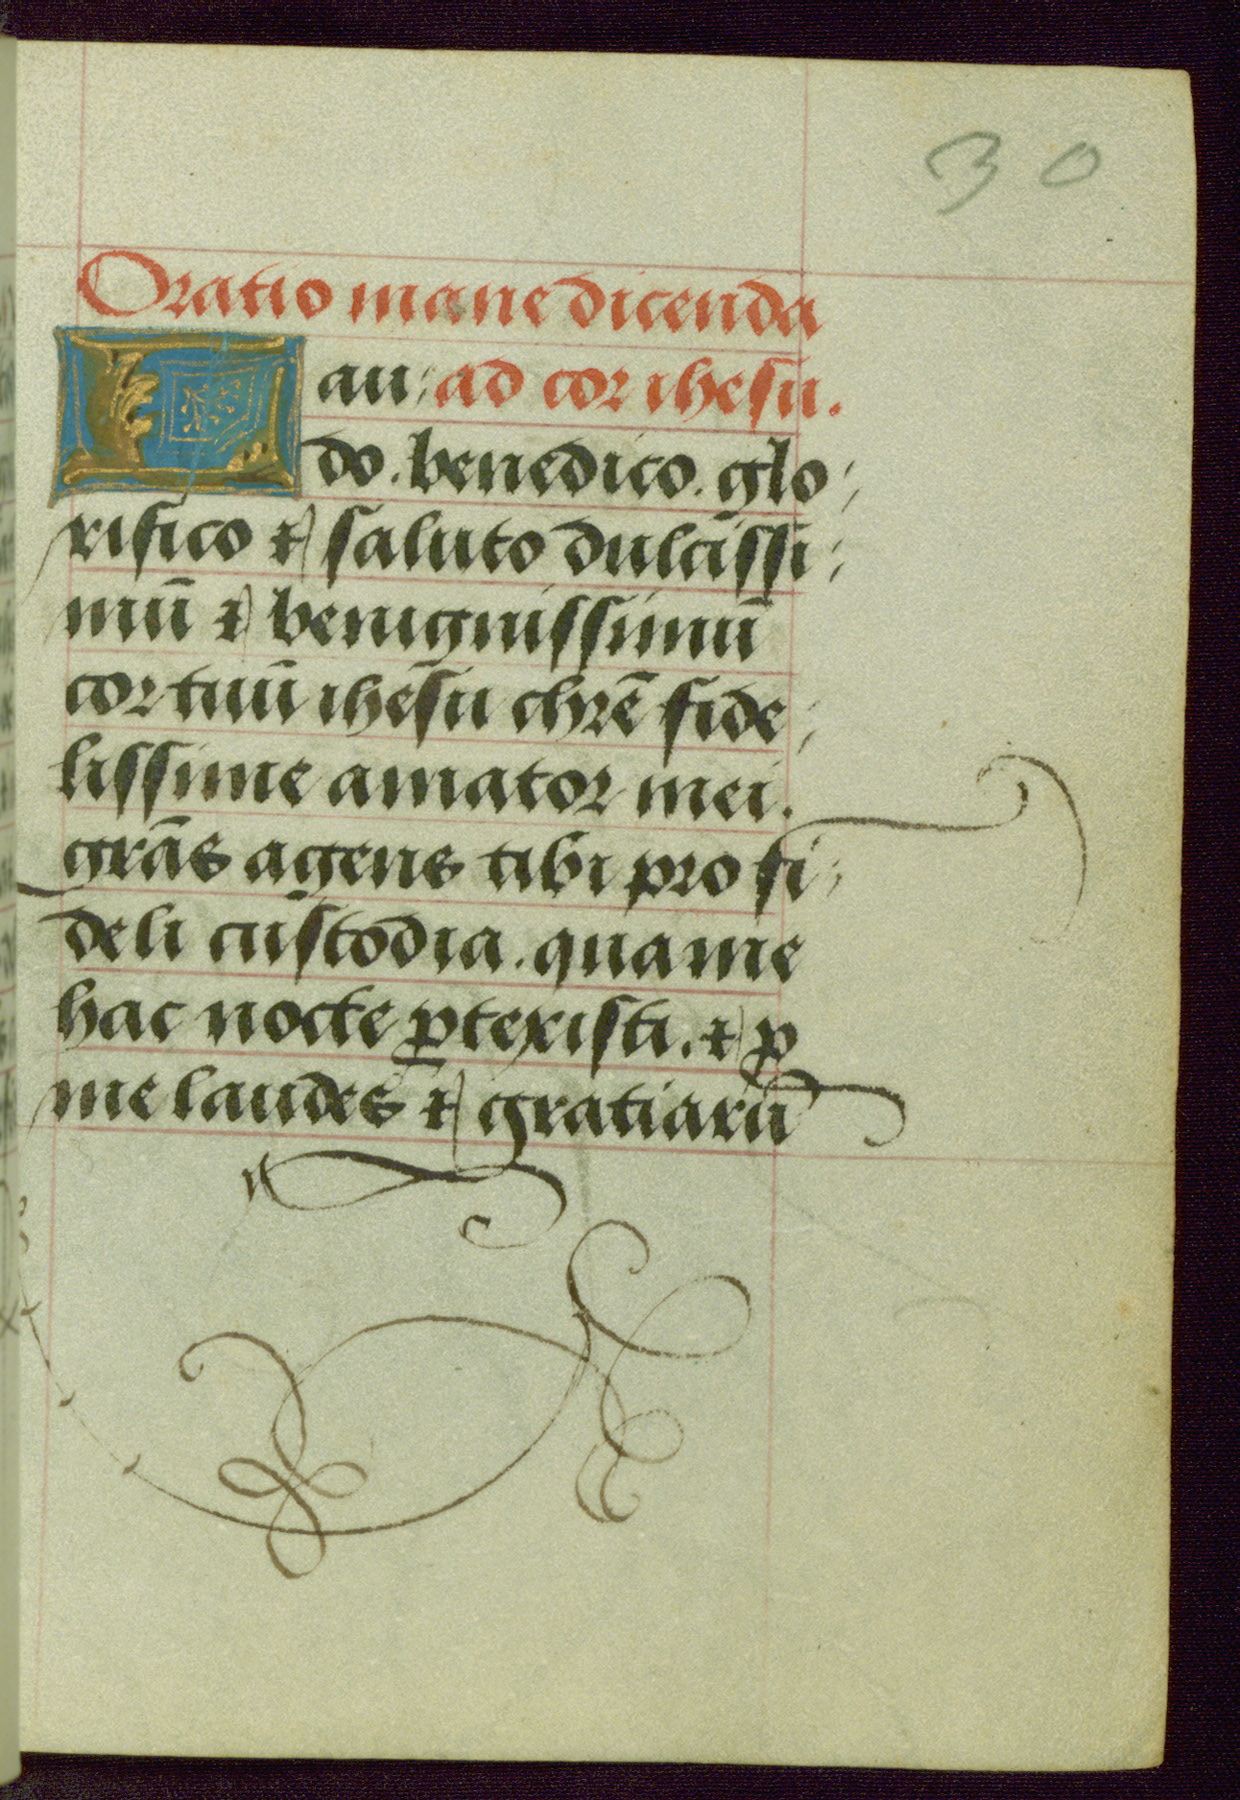 30
Oratio mane dicenda
Lau: ad cor ihesu.
do. benedico. glo:
rifico ⁊ saluto dulcissi:
mū ⁊ benignissimū
cor tuū ihēsu chrē fide:
lissime amator mei.
grās agens tibi pro fi:
deli custodia. qua me
hac nocte ꝓtexisti. ⁊ ꝓ
me laudes ⁊ gratiarū